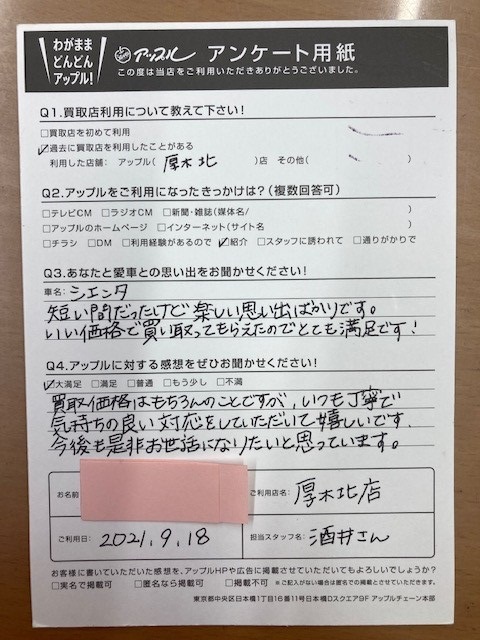 わがまま
どんどん
アップル!
アップル アンケート用紙
この度は当店をご利用いただきありがとうございました。
Q1.買取店利用について教えて下さい!
□買取店を初めて利用
☑過去に買取店を利用したことがある
利用した店舗: アップル(厚木北)店 その他( )
Q2.アップルをご利用になったきっかけは?(複数回答可)
□テレビCM □ラジオCM □新聞・雑誌(媒体名/ )
□アップルのホームページ □インターネット(サイト名 )
□チラシ □DM □利用経験があるので ☑紹介 □スタッフに誘われて □通りがかりで
Q3.あなたと愛車との思い出をお聞かせください!
車名: シエンタ
短い間だったけど楽しい思い出ばかりです。
いい価格で買い取ってもらえたのでとても満足です!
Q4.アップルに対する感想をぜひお聞かせください!
☑大満足 □満足 □普通 □もう少し □不満
買取価格はもちろんのことですが、いつも丁寧で
気持ちの良い対応をしていただいて嬉しいです。
今後も是非お世話になりたいと思っています。
お名前
ご利用店名: 厚木北店
ご利用日: 2021.9.18
担当スタッフ名: 酒井さん
お客様に書いていただいた感想を、アップルHPや広告に掲載させていただいてもよろしいでしょうか?
□実名で掲載可 □匿名なら掲載可 □掲載不可 ※ご記入がない場合は匿名での掲載とさせていただきます。
東京都中央区日本橋1丁目16番11号日本橋Dスクエア9F アップルチェーン本部